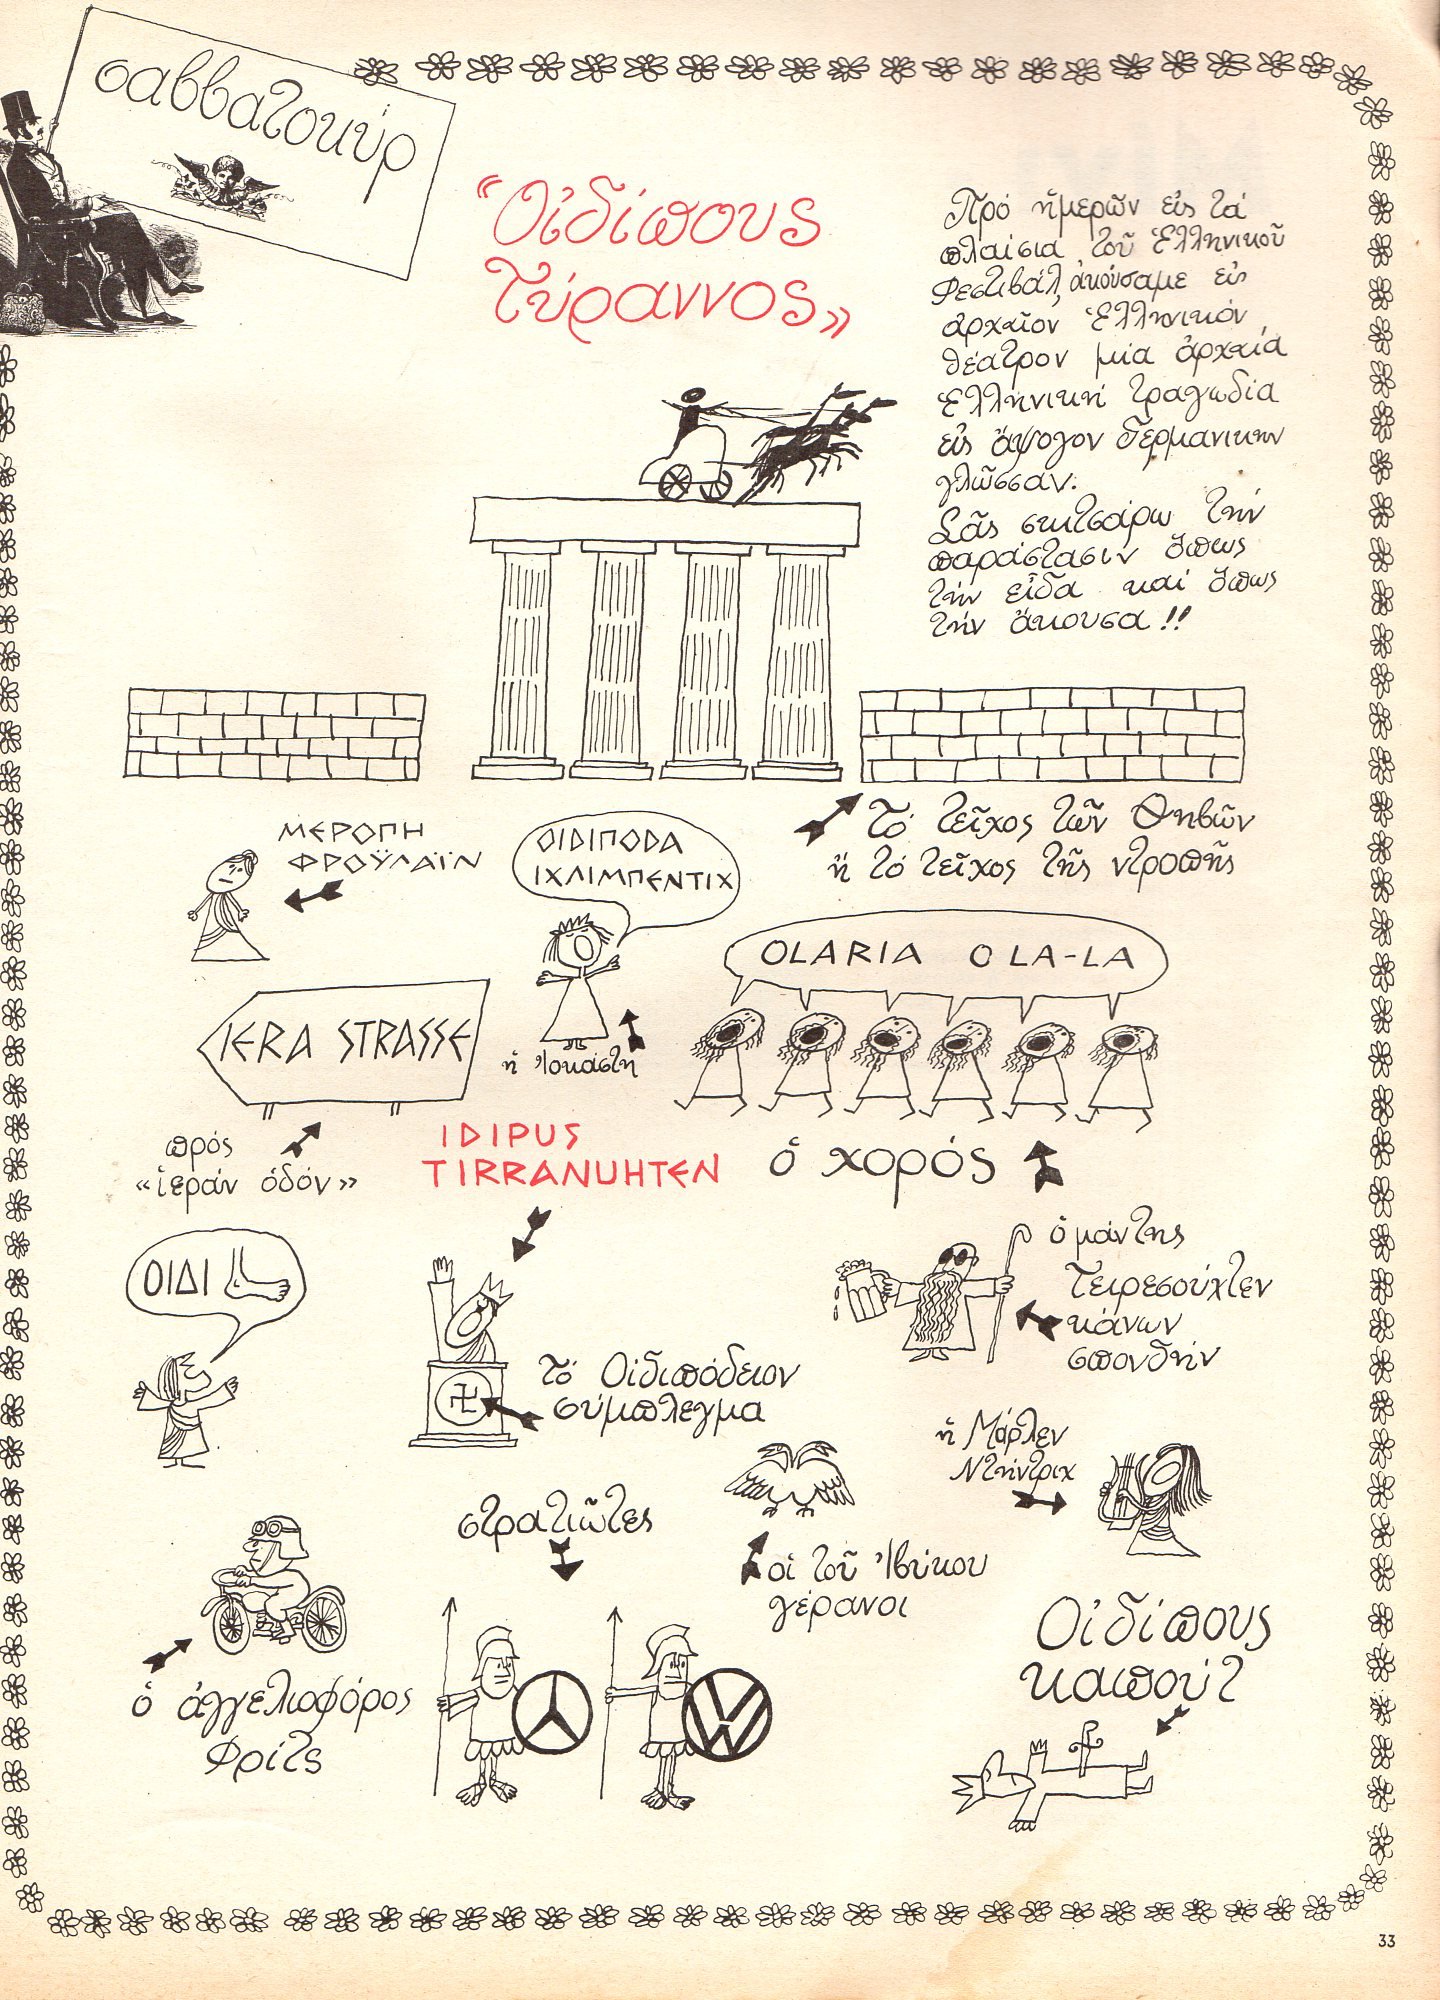 σαββατοκύρ
“Οἰδίπους
Τύραννος»
Πρό ἡμερῶν εἰς τά
πλαίσια τοῦ Ἑλληνικοῦ
Φεστιβάλ ἀκούσαμε εἰς
ἀρχαῖον Ἑλληνικόν
θέατρον μία ἀρχαία
Ἑλληνική τραγωδία
εἰς ἄψογον Γερμανικήν
γλῶσσαν.
Σᾶς σκιτσάρω τήν
παράστασιν ὅπως
τήν εἶδα καί ὅπως
τήν ἄκουσα!!
Τό τεῖχος τῶν Θηβῶν
ἤ τό τεῖχος τῆς ντροπῆς
ΜΕΡΟΠΗ
ΦΡΟΫΛΑΪΝ
ΟΙΔΙΠΟΔΑ
ΙΧΛΙΜΠΕΝΤΙΧ
ἡ Ἰοκάστη
OLARIA O LA-LA
ὁ χορός
IERA STRASSE
πρός
«ἱεράν ὁδόν»
IDIPUS
TIRRANUHTEN
ΟΙΔΙ
τό Οἰδιπόδειον
σύμπλεγμα
ὁ μάντης
Τειρεσούχτεν
κάνων
σπονδήν
ἡ Μάρλεν
Ντήντριχ
στρατιῶτες
οἱ τοῦ Ἰβύκου
γέρανοι
ὁ ἀγγελιοφόρος
Φρίτς
Οἰδίπους
καπούτ
33